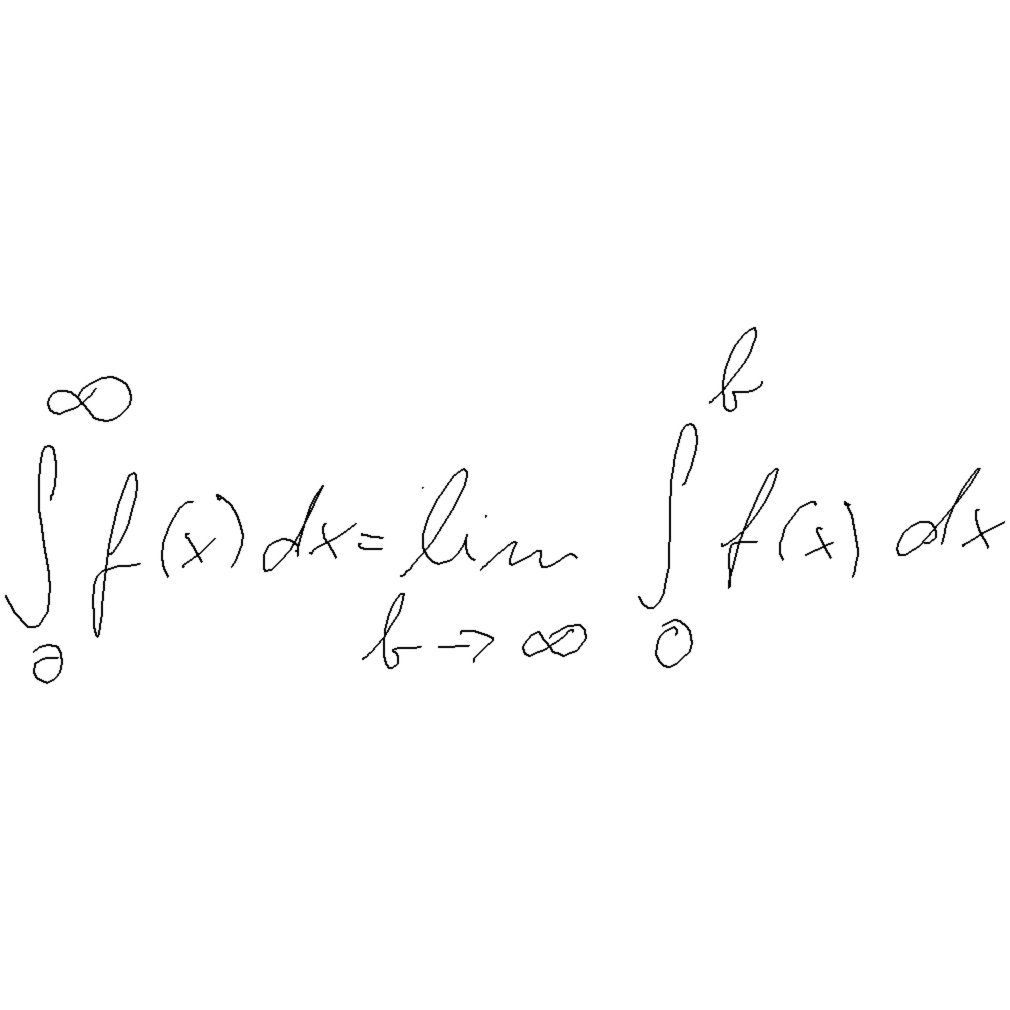 \int_{0}^{\infty} f(x) dx = \lim_{b \to \infty} \int_{0}^{b} f(x) dx